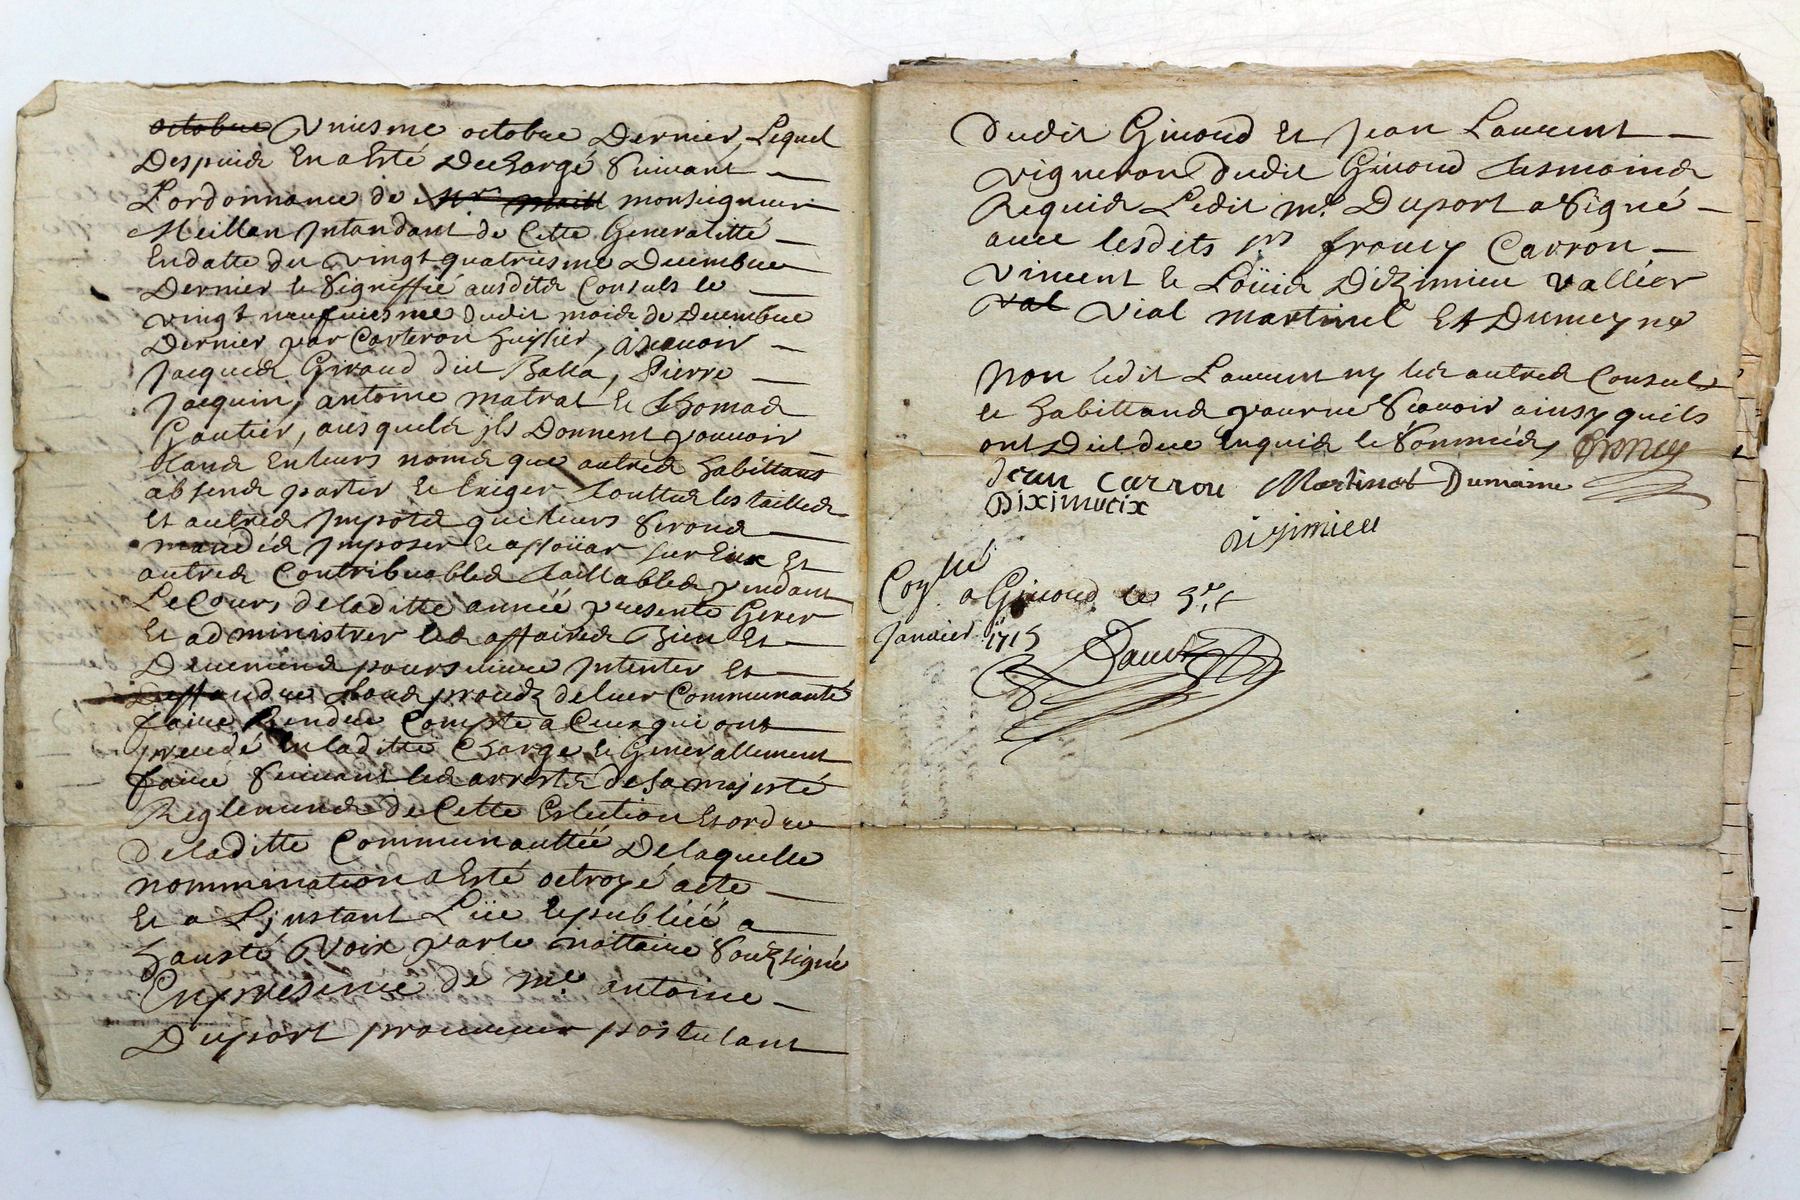 octobre vniesme octobre Dernier, Lequel
Despuis En a Esté Deschargé Suivant
L'ordonnance de Mr monseigneur
Meillan Intandant de Cette Generalitté
En datte du vingt quatriesme Decembre
Dernier et Signiffié ausdits Consuls le
vingt neufuiesme dudit mois de Decembre
Dernier par Carteron huissier, a scavoir
Jacques Giraud dit Balla, Pierre
Jacquin, antoine matrat et Thomas
Gautier, ausquels jls Donnent pouuoir
tant En leurs noms que autres habittans
absens partir et Exiger touttes les tailles
Et autres Imposts qui leurs Seront
mandés Imposer et assoüar sur Eux Et
autres Contribuables taillables pendant
Le Cours de laditte année presente Gerer
Et administrer les affaires Bien Et
Deuement poursuiure Intenter Et
deffandre tous procez de leur Communauté
faire Rendre Compte a Ceux qui ont
precedé En laditte Charge et Generallement
faire Suivant les arrests de sa majesté
Reglements de Cette Eslection Et ordre
De laditte Communauttée De laquelle
nommination a Esté octroyé acte
Et a L'jnstant Lüe Et publiéé a
haute Voix par le nottaire Souzsigné
En presence de Me. antoine
Duport procureur postulant
Dudit Giuord Et Jean Laurent
vigneron Dudit Giuord tesmoins
Requis Ledit Me. Duport a Signé
auec lesdits Carron
Vincent et Loüis Dizimieu vallier
val Vial martinel Et Dumeyne
Non Ledit Laurent ny les autres Consuls
et habittans pour ne Scauoir ainsy quils
ont Dit de ce Enquis et Sommés
Jean Carron Martinat Dumaine
Diximieix
dizimieu
Coners
a Giuord le
Januier 1715